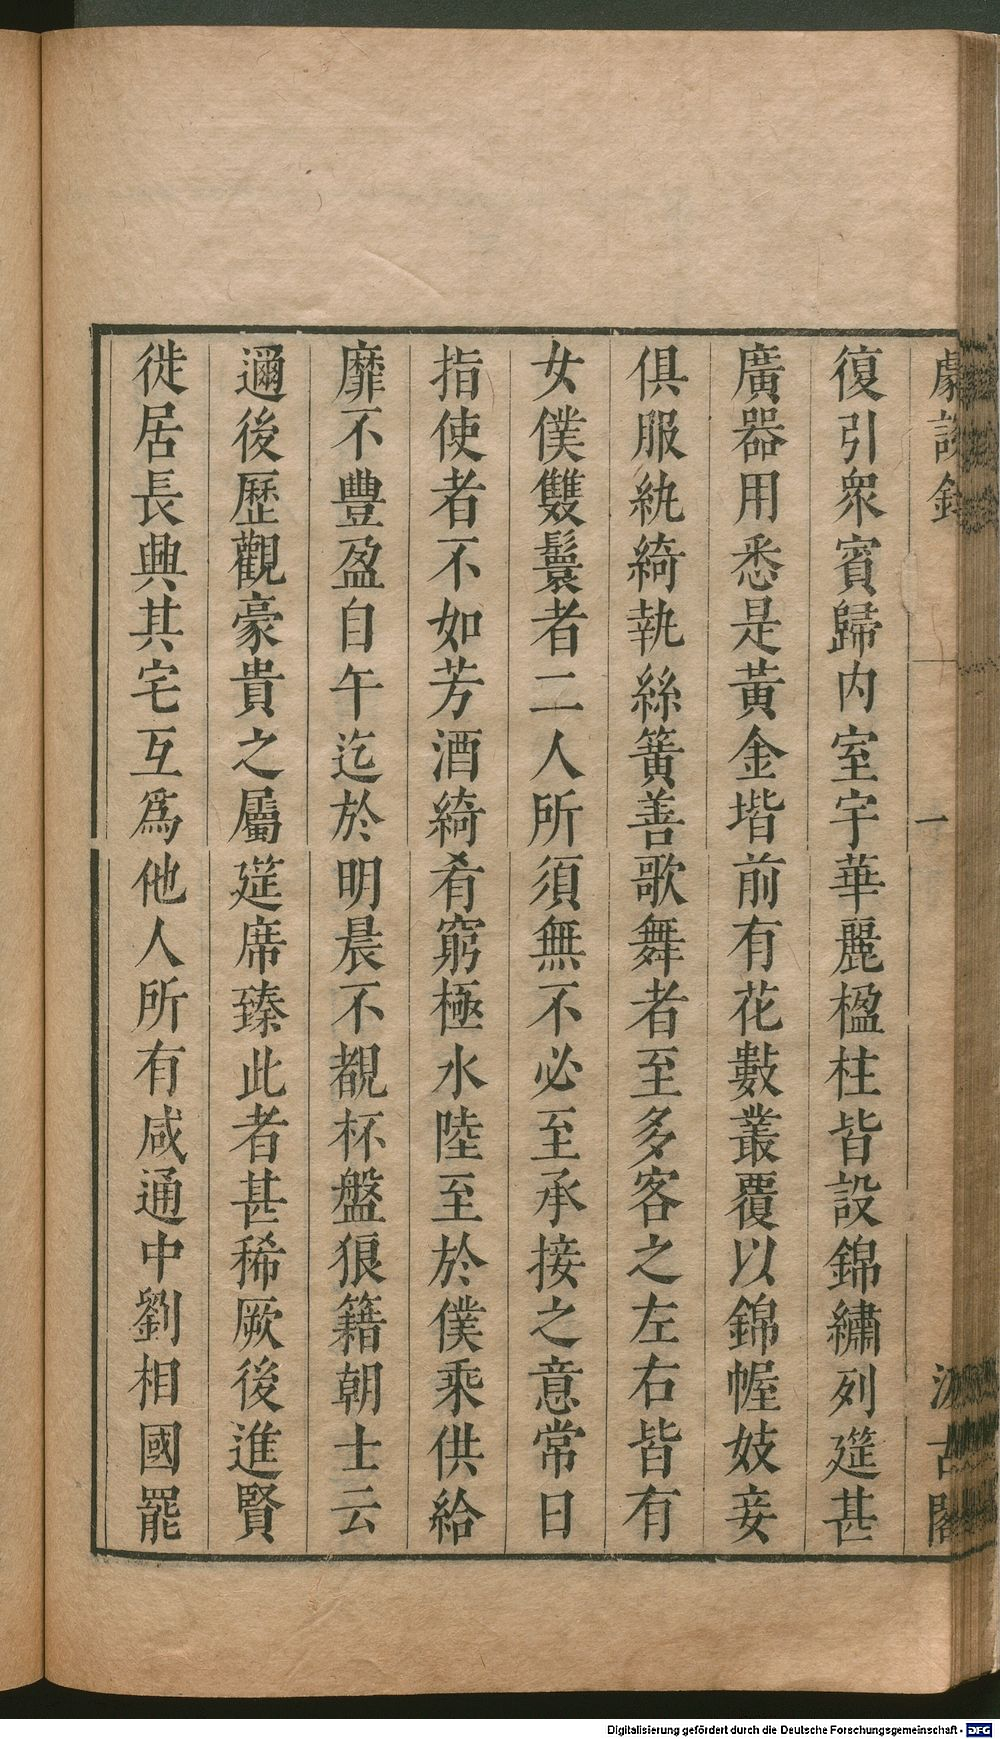 劇談錄 一 汲古閣
復引衆賓歸内室宇華麗楹柱皆設錦繡列筵甚
廣器用悉是黃金堦前有花數叢覆以錦幄妓妾
俱服紈綺執絲簧善歌舞者至多客之左右皆有
女僕雙鬟者二人所須無不必至承接之意常日
指使者不如芳酒綺肴窮極水陸至於僕乘供給
靡不豐盈自午迄於明晨不覩杯盤狼籍朝士云
邇後歷觀豪貴之屬筵席臻此者甚稀厥後進賢
徙居長興其宅互爲他人所有咸通中劉相國罷
Digitalisierung gefördert durch die Deutsche Forschungsgemeinschaft - DFG